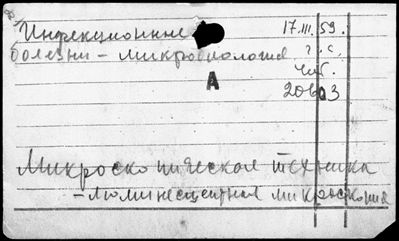 Инфекционные 17.III.59.
болезни – микробиология г. с.
Чит.
А
20603
Микроскопическая техника
– люминесцентная микроскопия